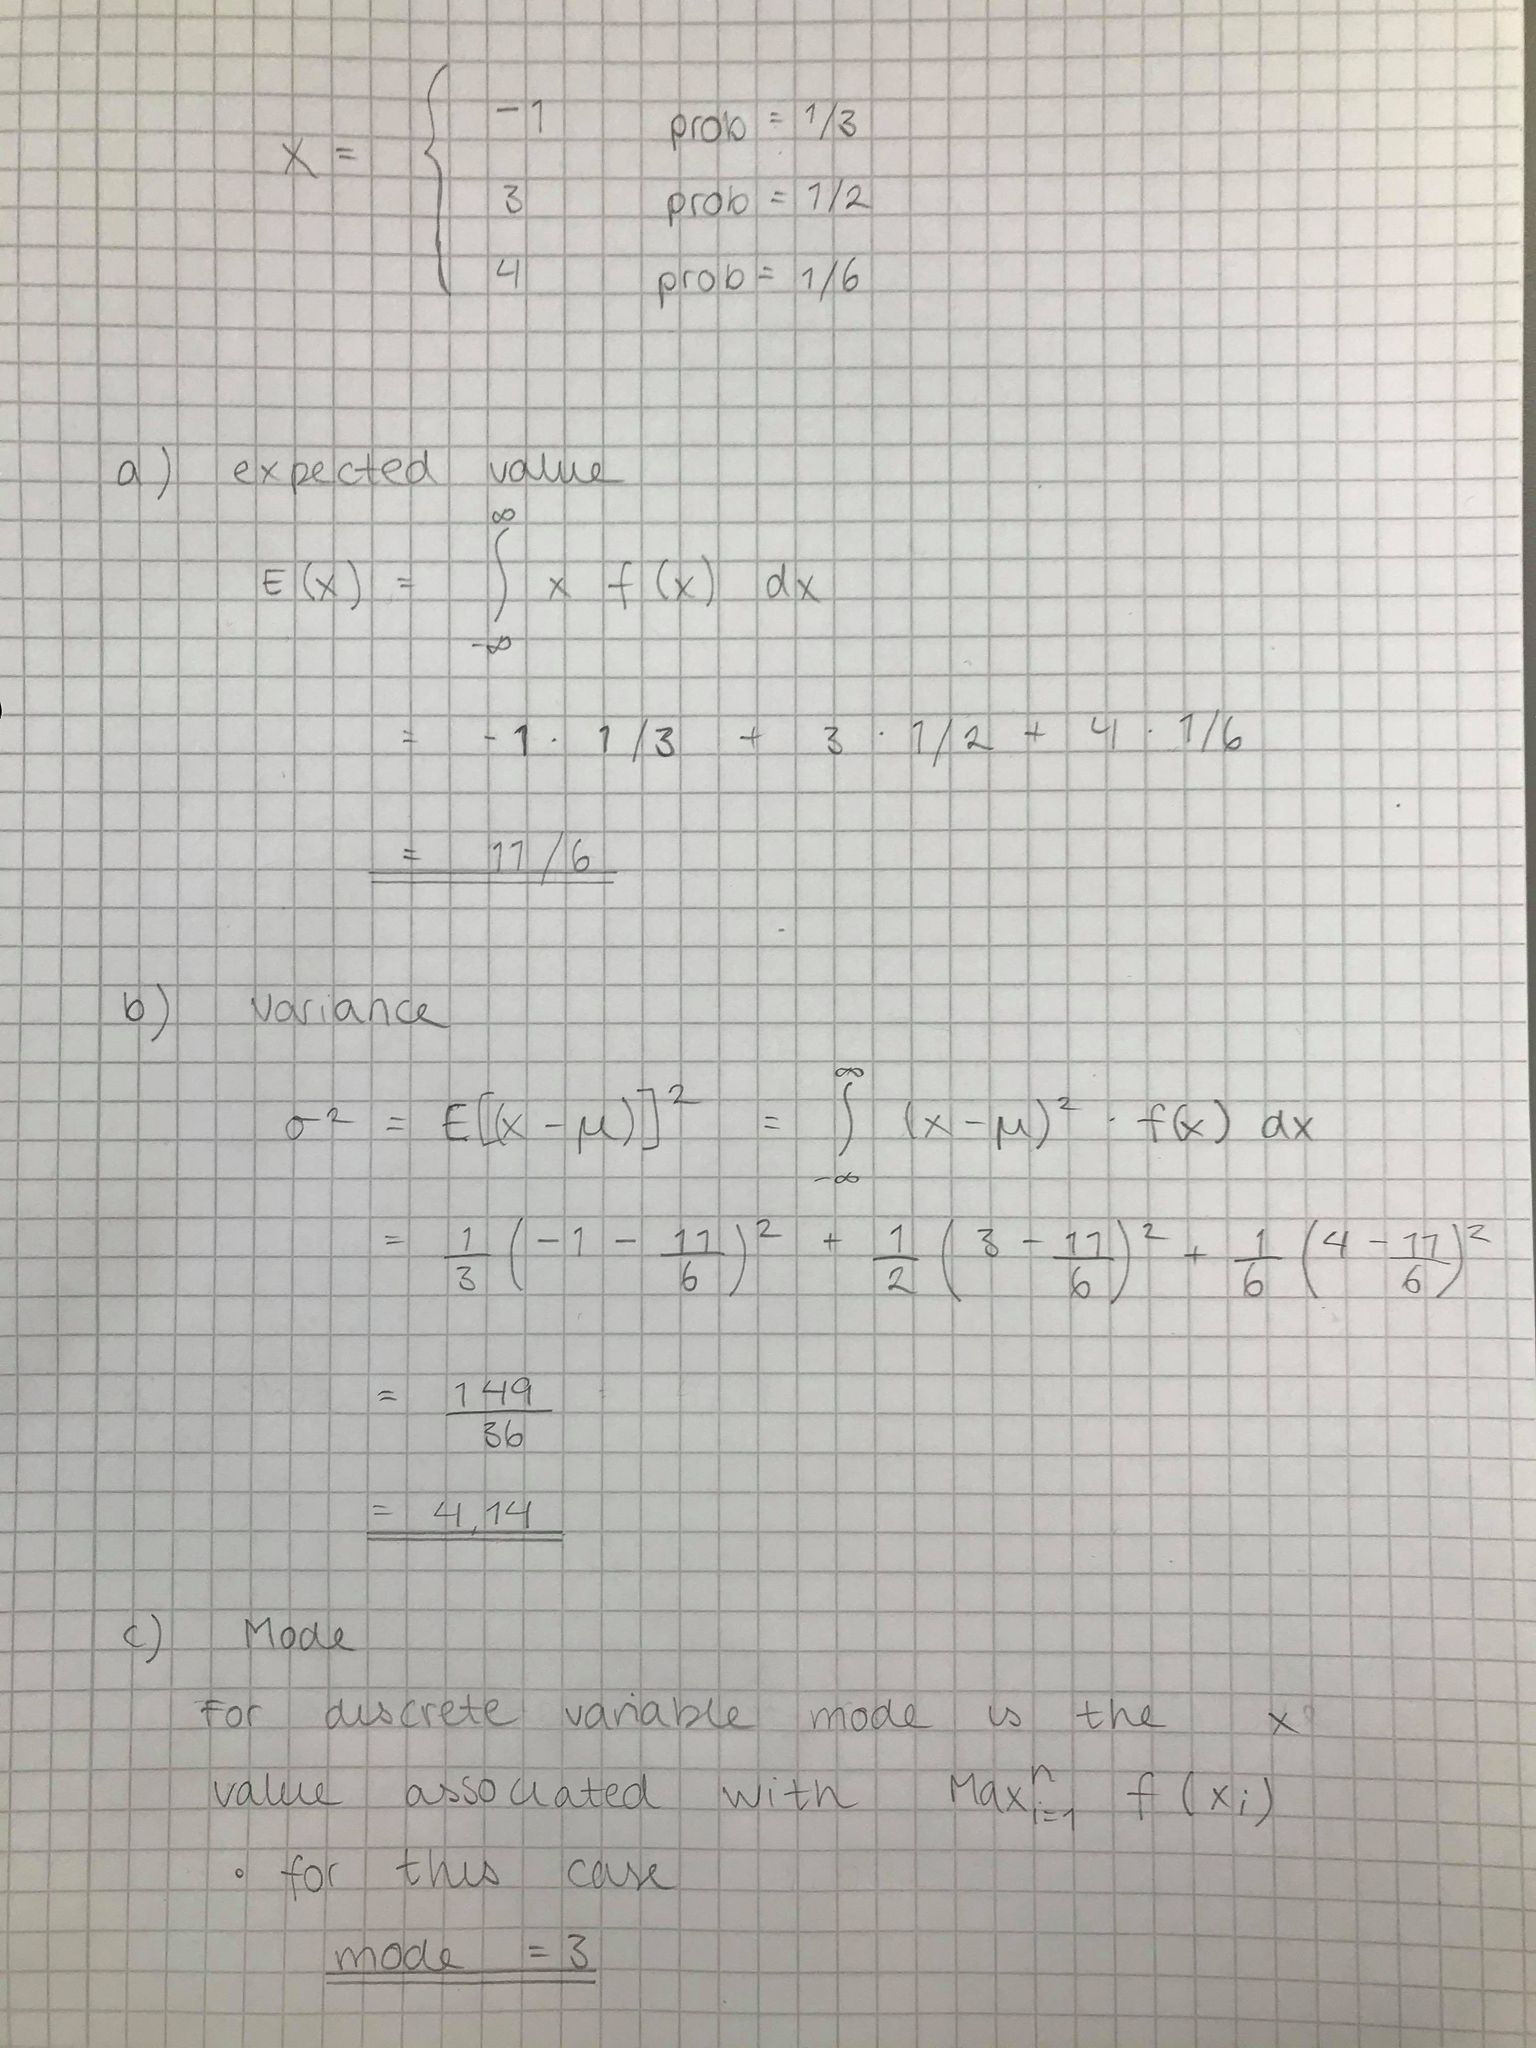 x = { -1 prob = 1/3
3 prob = 1/2
4 prob = 1/6
a) expected value
E(x) = ∫_{-∞}^{∞} x f(x) dx
= -1 · 1/3 + 3 · 1/2 + 4 · 1/6
= 11/6
b) variance
σ² = E[(x-μ)]² = ∫_{-∞}^{∞} (x-μ)² · f(x) dx
= 1/3 (-1 - 11/6)² + 1/2 (3 - 11/6)² + 1/6 (4 - 11/6)²
= 149/36
= 4,14
c) Mode
For discrete variable mode is the x
value associated with Max_{i=1}^{n} f(x_i)
• for this case
mode = 3